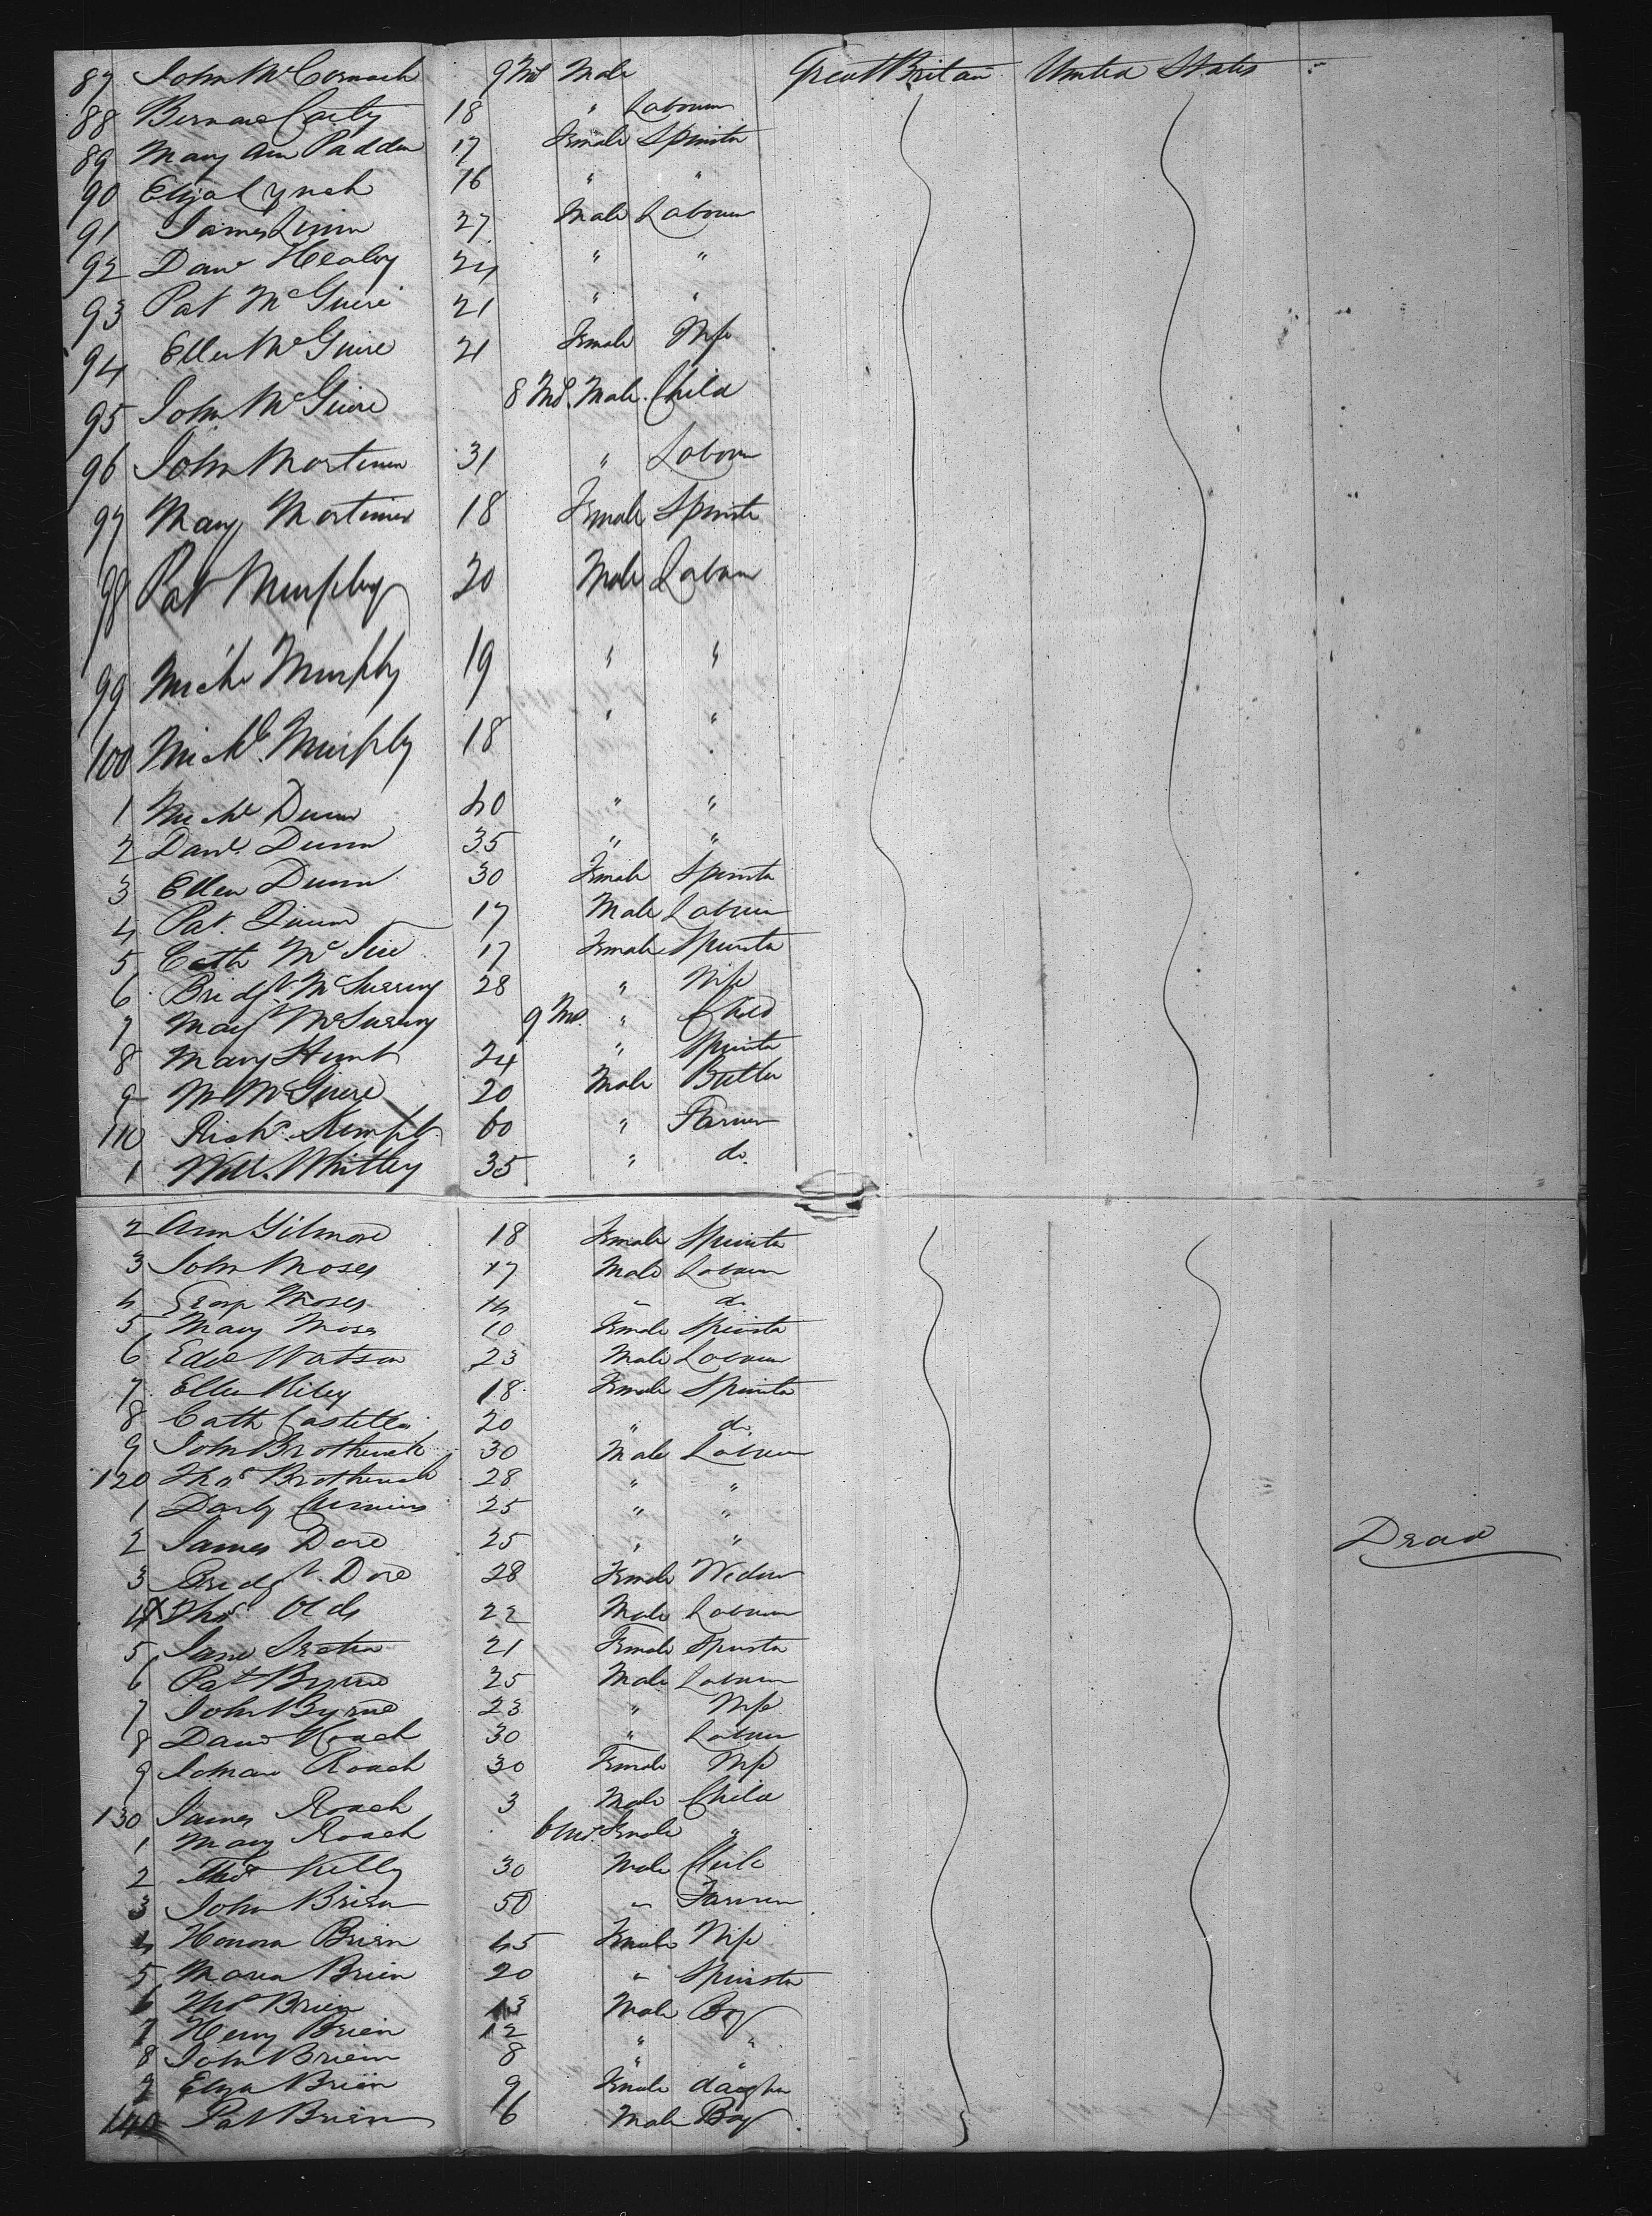 87 John McCormack 9 Ms Male Great Britain United States
88 Bernard Carty 18 " Labourer
89 Mary Ann Padden 17 Female Spinster
90 Eliza Lynch 16 " "
91 James Quinn 27 Male Labourer
92 Danl Healey 24 " "
93 Pat McGuire 21 " "
94 Ellen McGuire 21 Female Wife
95 John McGuire 8 Ms. Male Child
96 John Mortimer 31 " Labourer
97 Mary Mortimer 18 Female Spinster
98 Pat Murphy 20 Male Labourer
99 Michl Murphy 19 " "
100 Michl. Murphy 18 " "
1 Michl Dunn 40 " "
2 Danl. Dunn 35 " "
3 Ellen Dunn 30 Female Spinster
4 Pat. Quinn 17 Male Labourer
5 Cath Mc 17 Female Spinster
6 Bridgt. 28 " Wife
7 Margt 9 Ms. " Child
8 Mary Hunt 24 " Spinster
9 McGuire 20 Male Butler
110 Richd. 60 " Farmer
1 Will. Whitley 35 " do.
2 Ann Gilmore 18 Female Spinster
3 John Moses 17 Male Labourer
4 George Moses 14 " do
5 Mary Moses 10 Female Spinster
6 Edwd Watson 23 Male Labourer
7 Ellen Riley 18 Female Spinster
8 Cath Castello 20 " do.
9 John 30 Male Labourer
120 Thos 28 " "
1 Darby Cummins 25 " "
2 James Dore 25 " " Dead
3 Bridgt. Dore 28 Female Widow
4 X Thos. Olds 22 Male Labourer
5 Jane 21 Female Spinster
6 Pat Byrne 25 Male Labourer
7 John Byrne 23 " Wife
8 Danl Roach 30 " Labourer
9 Roach 30 Female Wife
130 James Roach 3 Male Child
1 Mary Roach 6 Ms. Female "
2 Thos Kelly 30 Male Clerk
3 John Brien 50 " Farmer
4 Honora Brien 45 Female Wife
5 Maria Brien 20 " Spinster
6 Thos Brien 13 Male Boy
7 Henry Brien 12 " "
8 John Brien 8 " "
9 Eliza Brien 9 Female daughter
140 Pat Brien 6 Male Boy